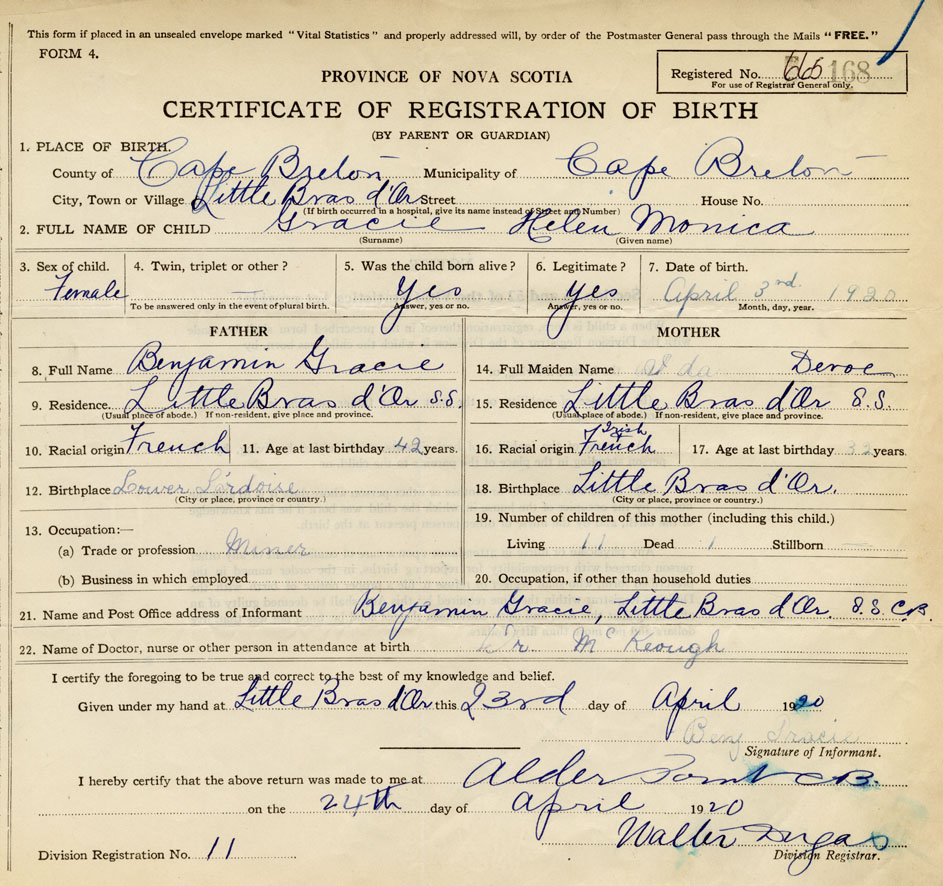 This form if placed in an unsealed envelope marked "Vital Statistics" and properly addressed will, by order of the Postmaster General pass through the Mails "FREE."
FORM 4.
PROVINCE OF NOVA SCOTIA
Registered No. 168
For use of Registrar General only.
CERTIFICATE OF REGISTRATION OF BIRTH
(BY PARENT OR GUARDIAN)
1. PLACE OF BIRTH.
County of Cape Breton Municipality of Cape Breton
City, Town or Village Little Bras d'Or Street House No.
(If birth occurred in a hospital, give its name instead of Street and Number)
2. FULL NAME OF CHILD Gracie Helen Monica
(Surname) (Given name)
3. Sex of child. 4. Twin, triplet or other? 5. Was the child born alive? 6. Legitimate? 7. Date of birth.
Female — Yes yes April 3rd. 1920
To be answered only in the event of plural birth. Answer, yes or no. Answer, yes or no. Month, day, year.
FATHER MOTHER
8. Full Name Benjamin Gracie 14. Full Maiden Name Ida Devoe
9. Residence. Little Bras d'Or S.S. 15. Residence Little Bras d'Or S.S.
(Usual place of abode.) If non-resident, give place and province. (Usual place of abode.) If non-resident, give place and province.
Irish
10. Racial origin French 11. Age at last birthday 42 years. 16. Racial origin French 17. Age at last birthday 32 years.
12. Birthplace Lower L'rdoise 18. Birthplace Little Bras d'Or.
(City or place, province or country.) (City or place, province or country.)
13. Occupation:— 19. Number of children of this mother (including this child.)
(a) Trade or profession Miner Living 11 Dead 1 Stillborn —
(b) Business in which employed 20. Occupation, if other than household duties
21. Name and Post Office address of Informant Benjamin Gracie, Little Bras d'Or S.S. C.B.
22. Name of Doctor, nurse or other person in attendance at birth Dr McKeough
I certify the foregoing to be true and correct to the best of my knowledge and belief.
Given under my hand at Little Bras d'Or this 23rd day of April 1920
Benj Gracie
Signature of Informant.
I hereby certify that the above return was made to me at Alder Point C.B.
on the 24th day of April 1920
Walter Dugas
Division Registration No. 11 Division Registrar.